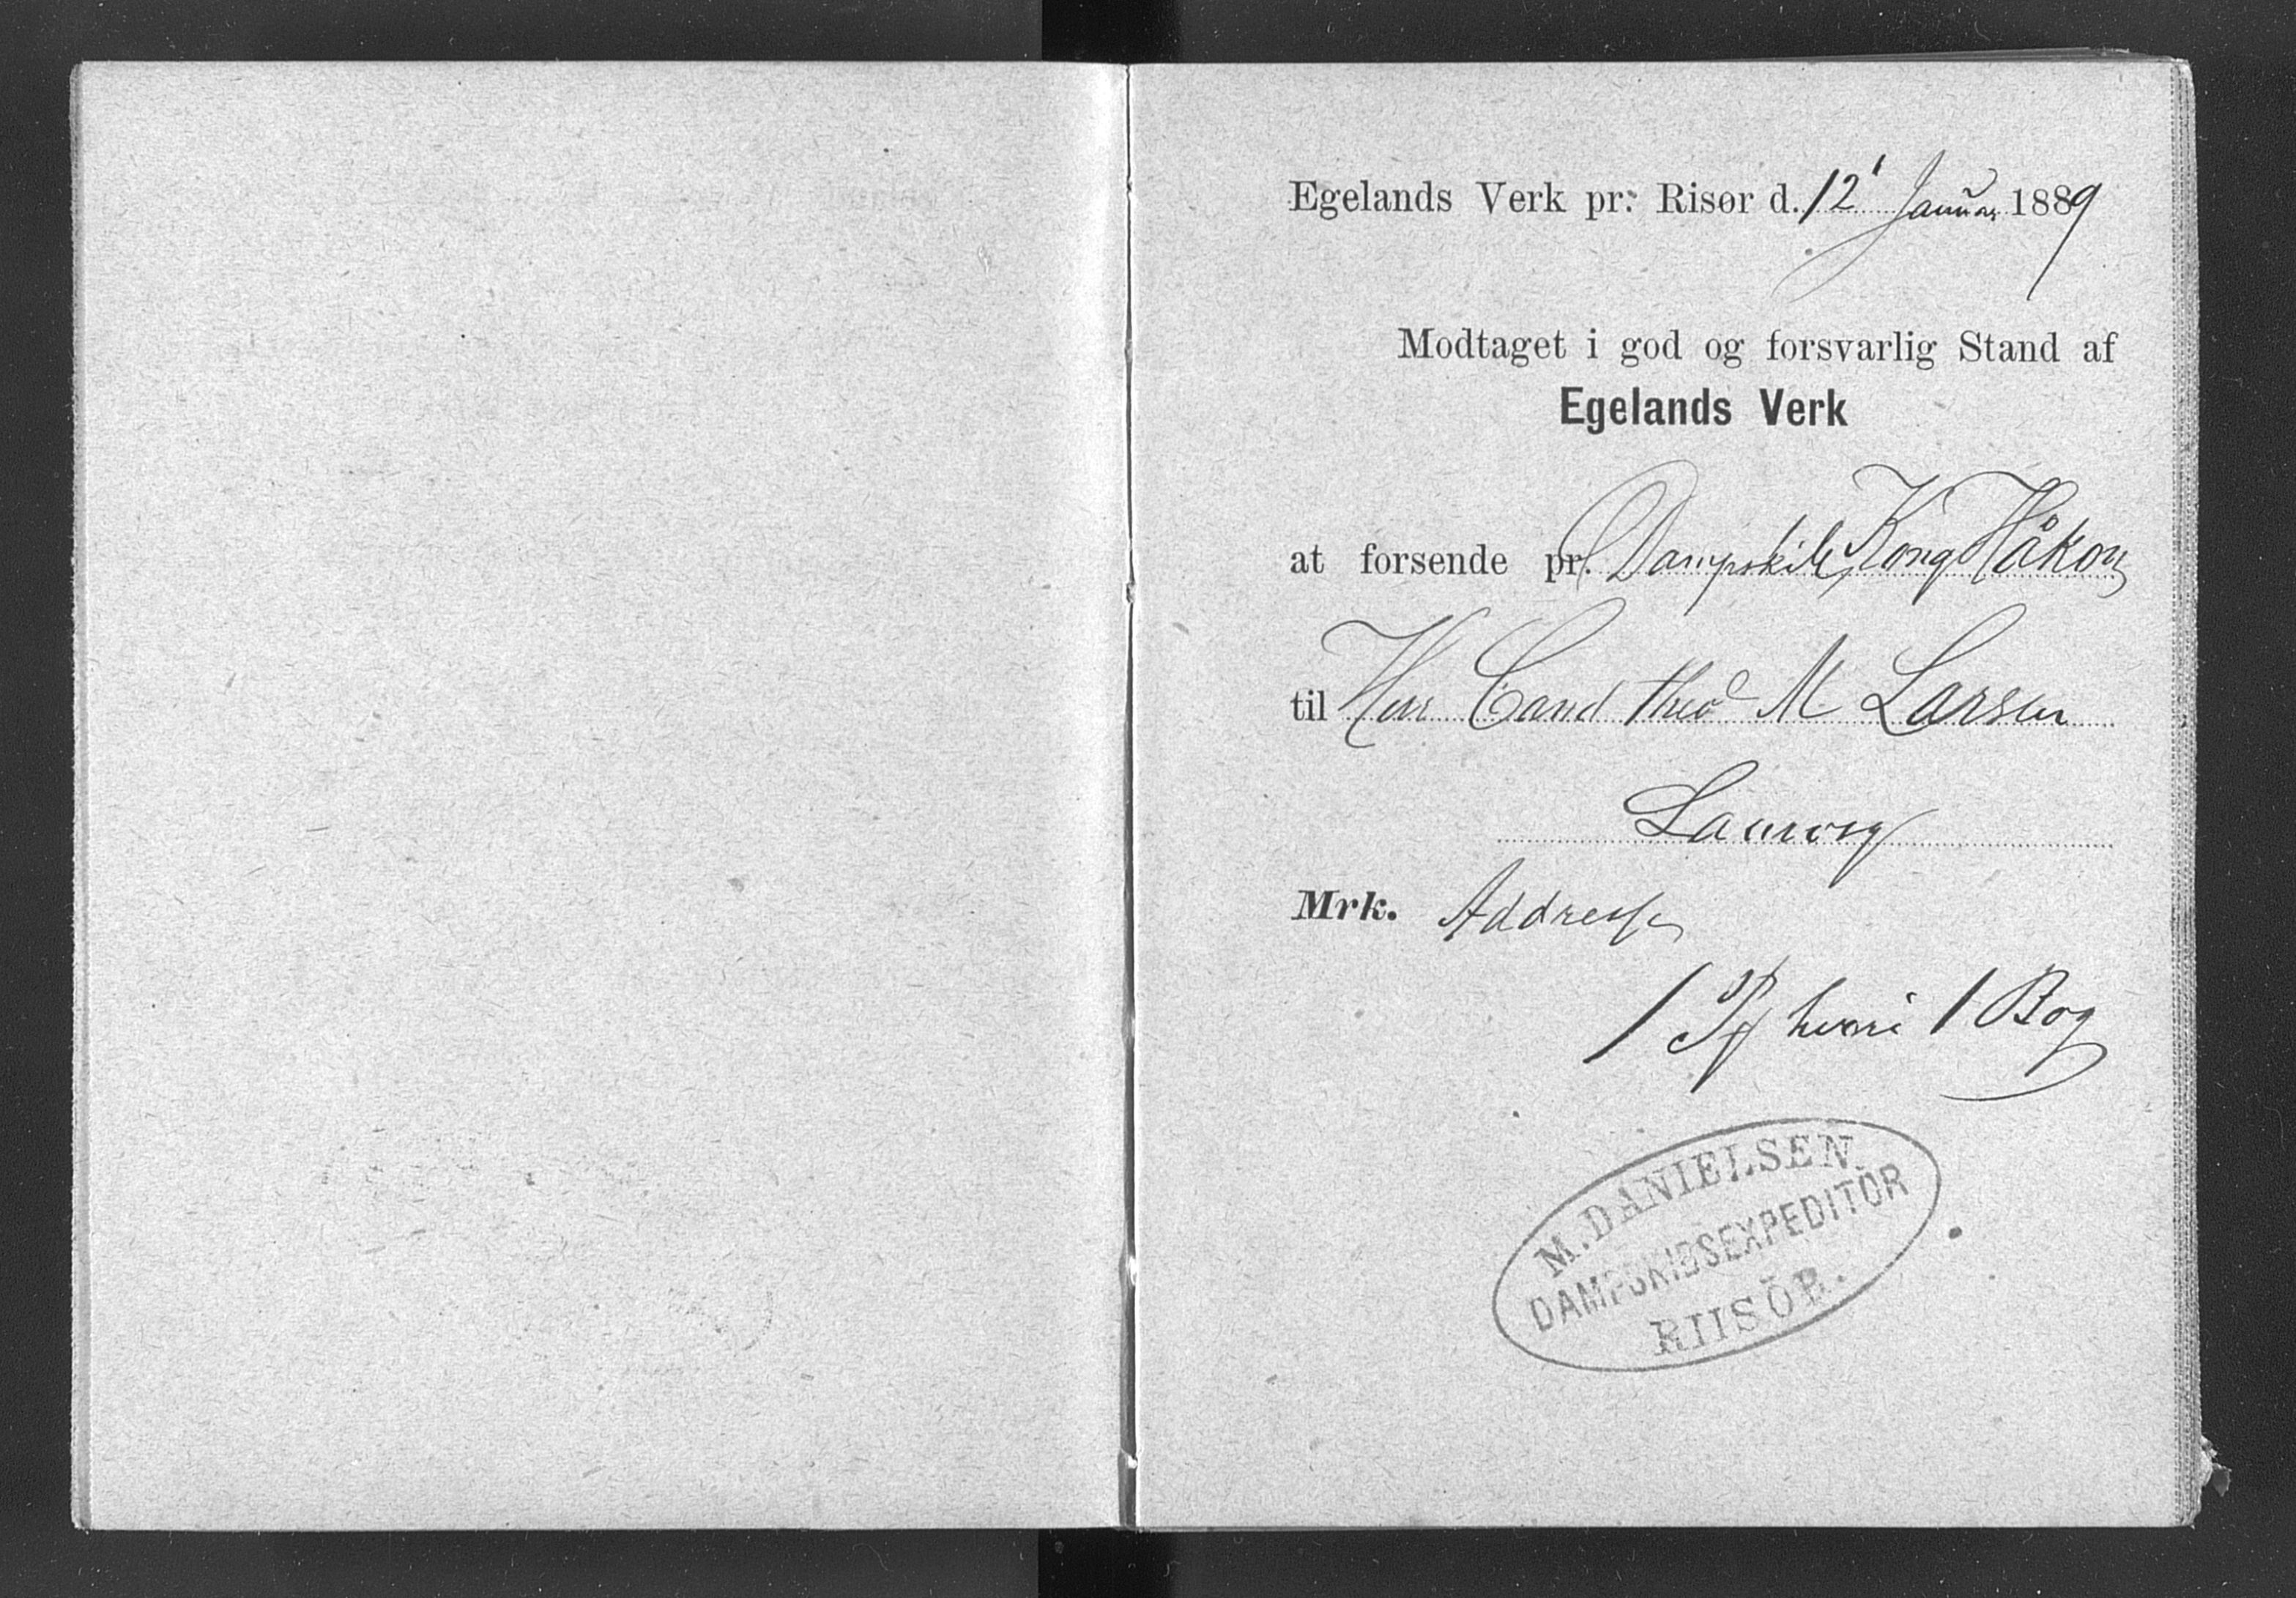 Egelands Verk pr. Risør d. 12' Januar 1889
Modtaget i god og forsvarlig Stand af
Egelands Verk
at forsende pr. Dampskib Kong Håkon
til Herr Cand theo M Larsen
Laurvig
Mrk. Addresse
1 Pk hvori 1 Bog
M. DANIELSEN
DAMPSKIBSEXPEDITÖR
RIISÖR.